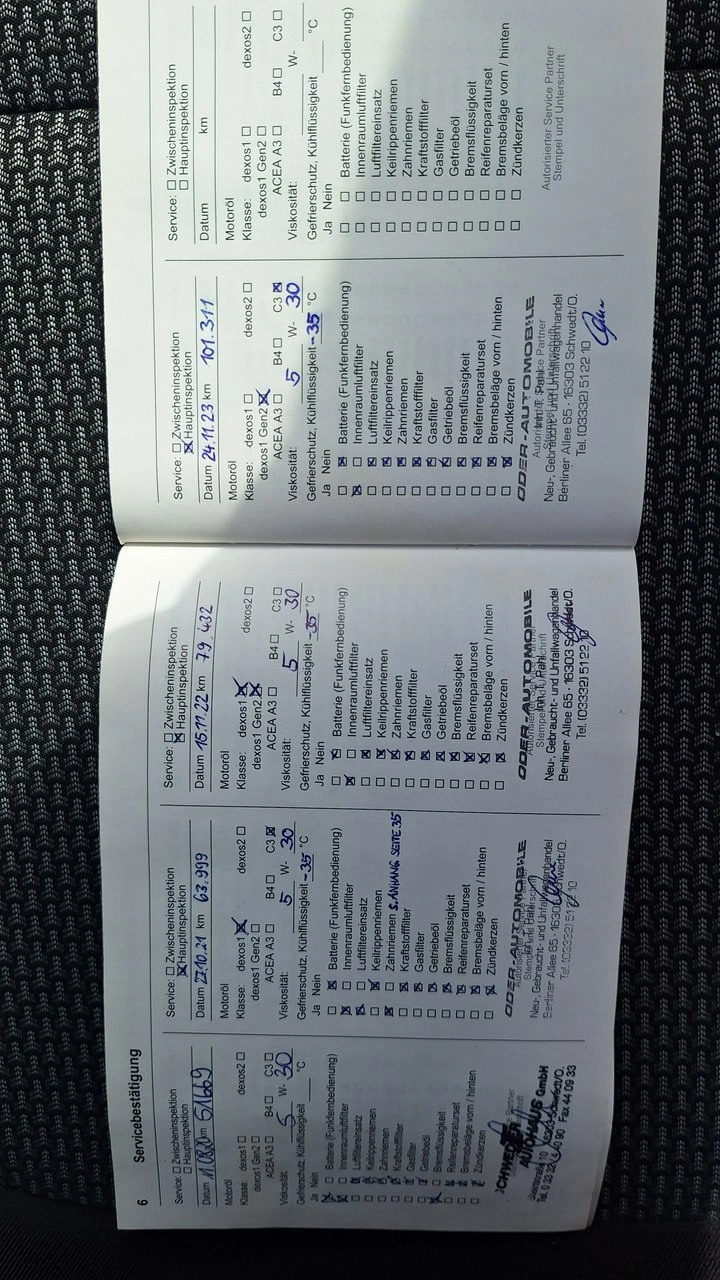 6
Servicebestätigung
Service: ☐ Zwischeninspektion
☐ Hauptinspektion
Datum 11.08.20 km 51669
Motoröl
Klasse: dexos1 ☐ dexos2 ☐
dexos1 Gen2 ☐
ACEA A3 ☐ B4 ☐ C3 ☐
Viskosität: 5 W- 30
Gefrierschutz, Kühlflüssigkeit °C
Ja Nein
☒ ☐ Batterie (Funkfernbedienung)
☒ ☐ Innenraumluftfilter
☐ ☒ Luftfiltereinsatz
☐ ☒ Keilrippenriemen
☐ ☒ Zahnriemen
☐ ☒ Kraftstofffilter
☐ ☒ Gasfilter
☐ ☒ Getriebeöl
☒ ☐ Bremsflüssigkeit
☐ ☒ Reifenreparaturset
☐ ☒ Bremsbeläge vorn / hinten
☐ ☒ Zündkerzen
AUTOHAUS GmbH
Fax 44 09 33
Service: ☐ Zwischeninspektion
☒ Hauptinspektion
Datum 27.10.21 km 63.999
Motoröl
Klasse: dexos1 ☒ dexos2 ☐
dexos1 Gen2 ☐
ACEA A3 ☐ B4 ☐ C3 ☒
Viskosität: 5 W- 30
Gefrierschutz, Kühlflüssigkeit -35 °C
Ja Nein
☐ ☒ Batterie (Funkfernbedienung)
☒ ☐ Innenraumluftfilter
☐ ☒ Luftfiltereinsatz
☐ ☒ Keilrippenriemen
☒ ☐ Zahnriemen S. ANHANG SEITE 35
☐ ☒ Kraftstofffilter
☐ ☒ Gasfilter
☐ ☒ Getriebeöl
☐ ☒ Bremsflüssigkeit
☐ ☒ Reifenreparaturset
☐ ☒ Bremsbeläge vorn / hinten
☐ ☒ Zündkerzen
ODER-AUTOMOBILE
Neu-, Gebraucht- und Unfallwagenhandel
Berliner Allee 65 · 16303 Schwedt/O.
Tel. (03332) 51 22 10
Service: ☐ Zwischeninspektion
☒ Hauptinspektion
Datum 15.11.22 km 79.432
Motoröl
Klasse: dexos1 ☒ dexos2 ☐
dexos1 Gen2 ☒
ACEA A3 ☐ B4 ☐ C3 ☐
Viskosität: 5 W- 30
Gefrierschutz, Kühlflüssigkeit -35 °C
Ja Nein
☐ ☒ Batterie (Funkfernbedienung)
☒ ☐ Innenraumluftfilter
☐ ☒ Luftfiltereinsatz
☐ ☒ Keilrippenriemen
☐ ☒ Zahnriemen
☐ ☒ Kraftstofffilter
☐ ☒ Gasfilter
☐ ☒ Getriebeöl
☐ ☒ Bremsflüssigkeit
☐ ☒ Reifenreparaturset
☐ ☒ Bremsbeläge vorn / hinten
☐ ☒ Zündkerzen
ODER-AUTOMOBILE
Neu-, Gebraucht- und Unfallwagenhandel
Berliner Allee 65 · 16303 Schwedt/O.
Tel. (03332) 51 22 10
Service: ☐ Zwischeninspektion
☒ Hauptinspektion
Datum 24.11.23 km 101.311
Motoröl
Klasse: dexos1 ☐ dexos2 ☐
dexos1 Gen2 ☒
ACEA A3 ☐ B4 ☐ C3 ☒
Viskosität: 5 W- 30
Gefrierschutz, Kühlflüssigkeit -35 °C
Ja Nein
☐ ☒ Batterie (Funkfernbedienung)
☒ ☐ Innenraumluftfilter
☐ ☒ Luftfiltereinsatz
☐ ☒ Keilrippenriemen
☐ ☒ Zahnriemen
☐ ☒ Kraftstofffilter
☐ ☒ Gasfilter
☐ ☒ Getriebeöl
☐ ☒ Bremsflüssigkeit
☐ ☒ Reifenreparaturset
☐ ☒ Bremsbeläge vorn / hinten
☐ ☒ Zündkerzen
ODER-AUTOMOBILE
Autorisierter Service Partner
Neu-, Gebraucht- und Unfallwagenhandel
Berliner Allee 65 · 16303 Schwedt/O.
Tel. (03332) 51 22 10
Service: ☐ Zwischeninspektion
☐ Hauptinspektion
Datum km
Motoröl
Klasse: dexos1 ☐ dexos2 ☐
dexos1 Gen2 ☐
ACEA A3 ☐ B4 ☐ C3 ☐
Viskosität: W-
Gefrierschutz, Kühlflüssigkeit °C
Ja Nein
☐ ☐ Batterie (Funkfernbedienung)
☐ ☐ Innenraumluftfilter
☐ ☐ Luftfiltereinsatz
☐ ☐ Keilrippenriemen
☐ ☐ Zahnriemen
☐ ☐ Kraftstofffilter
☐ ☐ Gasfilter
☐ ☐ Getriebeöl
☐ ☐ Bremsflüssigkeit
☐ ☐ Reifenreparaturset
☐ ☐ Bremsbeläge vorn / hinten
☐ ☐ Zündkerzen
Autorisierter Service Partner
Stempel und Unterschrift